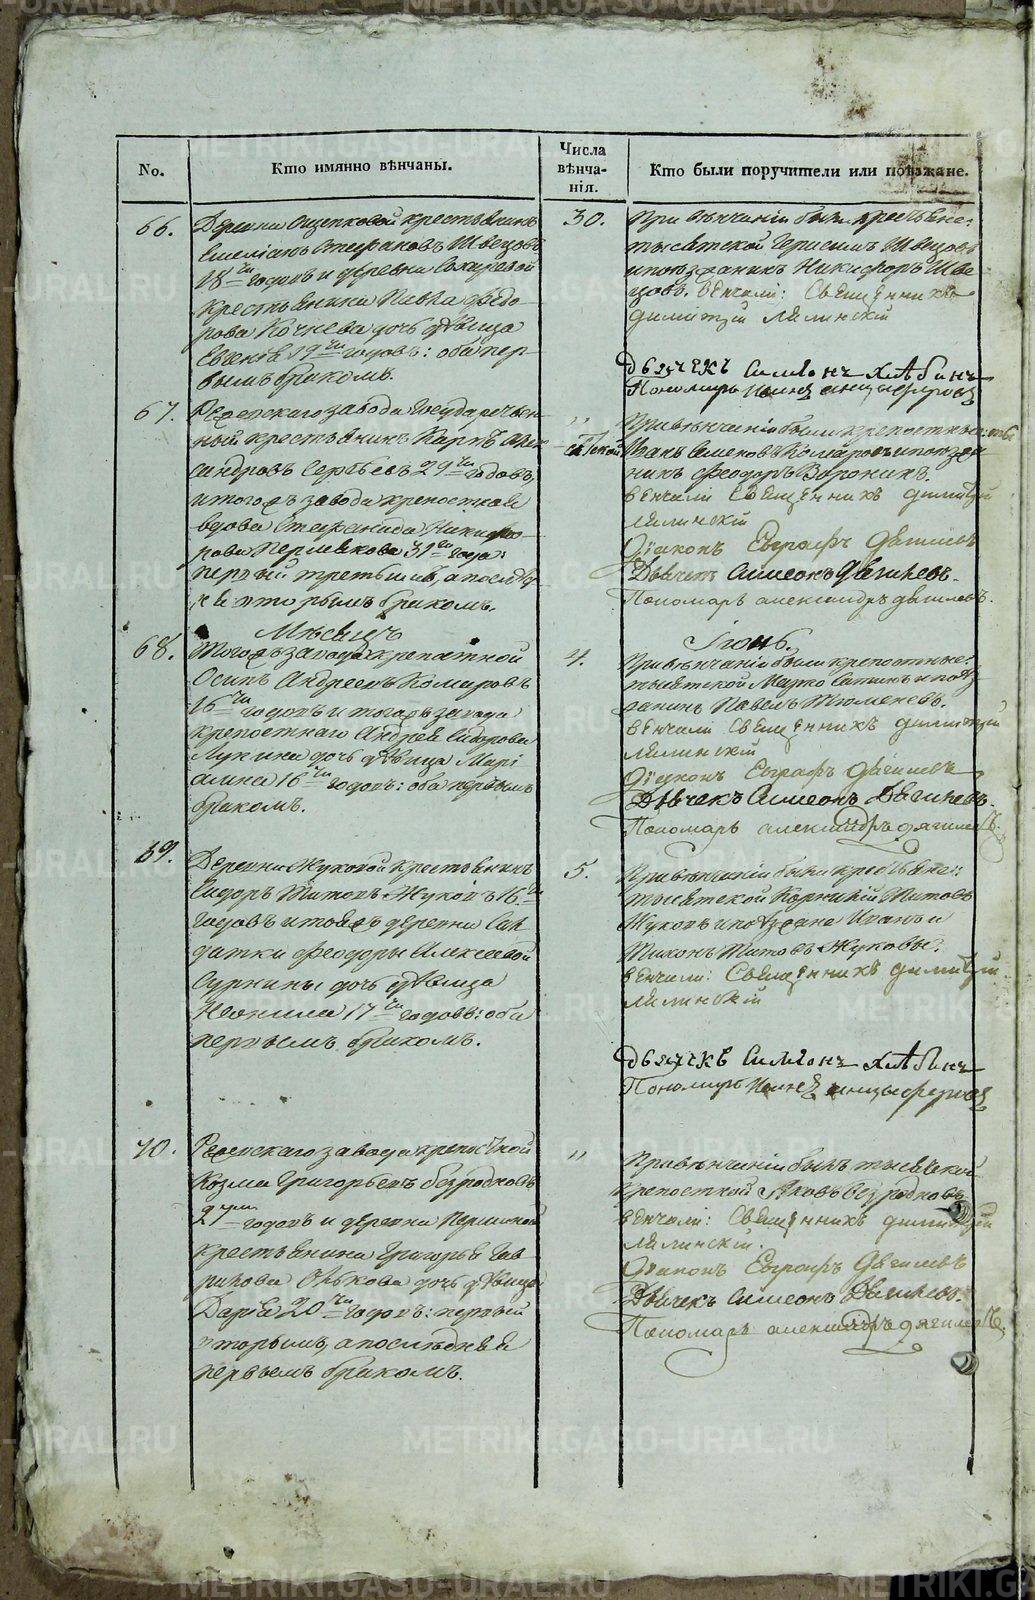 No.
Кто имянно вѣнчаны.
Числа
вѣнча-
нія.
Кто были поручители или поѣзжане.
66.
Деревни Ощепковой крестьянинъ
Емеліанъ Стефановъ Швецовъ
18ти годовъ и деревни
крестьянина Павла Федо
рова Кочнева дочь дѣвица
Евгенія 19ти годовъ: оба пер-
вымъ бракомъ.
30.
При вѣнчаніи были крестьяне:
тысяцкой Герасимъ Швецовъ
и поѣзжанинъ Никифоръ Шве
цовъ. вѣнчали: Священникъ
Димитрій Лялинскій
Дьячекъ Симеонъ Хлѣбинъ
Пономарь
67.
Режевскаго завода Государствен-
ный крестьянинъ Карпъ Алек
сандровъ Сергѣевъ 29ти годовъ,
и тогожъ завода крепостная
вдова Стефанида Никифо
рова 31го года:
первый третьимъ, а послѣд
няя вторымъ бракомъ.
"
При вѣнчаніи были крепостные: тыс
сяцкой Иванъ Комаровъ и поѣзжа
никъ Феодоръ Воронинъ.
вѣнчали Священникъ Димитрій
Лялинскій
Діаконъ Евграфъ Дягилевъ
Дьячекъ Симеонъ Дягилевъ.
Пономарь Александръ Дягилевъ.
Мѣсяцъ
Іюнь.
68.
Тогожъ завода крепостной
Осипъ Андреевъ Комаровъ
16ти годовъ и тогожъ завода
крепостнаго Андрея Сидорова
Лукина дочь дѣвица Марі
амна 16ти годовъ: оба первымъ
бракомъ.
4.
При вѣнчаніи были крепостные:
тысяцкой Марко Сапинъ и поѣз
жанинъ Павелъ Тюменевъ.
вѣнчали Священникъ Димитрій
Лялинскій
Діаконъ Евграфъ Дягилевъ
Дьячекъ Симеонъ Дягилевъ.
Пономарь Александръ Дягилевъ.
69.
Деревни Жуковой Крестьянинъ
Сидоръ Титовъ Жуковъ 16ти
годовъ и тояжъ деревни Сол
датки Феодоры Алексѣевой
Суркины дочь дѣвица
Неонила 17ти годовъ: оба
первымъ бракомъ.
5.
При вѣнчаніи были крестьяне:
тысяцкой Корнилій Титовъ
Жуковъ и поѣзжане Иванъ и
Тихонъ Титовъ Жуковы:
вѣнчали: Священникъ Димитрій
Лялинскій
Дьячекъ Симеонъ Хлѣбинъ
Пономарь
70.
Режевскаго завода крепостной
Козма Григорьевъ Безродновъ
27ми годовъ и деревни Першиной
крестьянина Григорья Гав
рилова Оръкова дочь дѣвица
Дарья 20ти годовъ: первый
вторымъ, а послѣдняя
первымъ бракомъ.
"
При вѣнчаніи былъ тысяцкой
крепостной Яковъ Безродновъ
вѣнчали: Священникъ Димитрій
Лялинскій.
Діаконъ Евграфъ Дягилевъ
Дьячекъ Симеонъ Дягилевъ.
Пономарь Александръ Дягилевъ.
METRIKI.GASO-URAL.RU